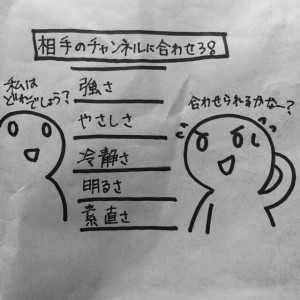 相手のチャンネルに合わせる。
私は
どれでしょう？
強さ
やさしさ
冷静さ
明るさ
素直さ
合わせられるかなー？